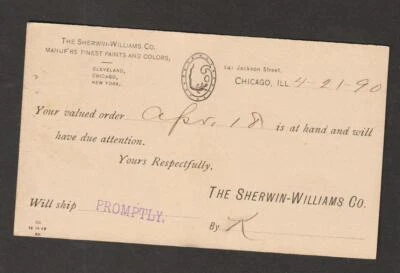 THE SHERWIN-WILLIAMS CO.
MANUF'RS FINEST PAINTS AND COLORS,
CLEVELAND,
CHICAGO,
NEW YORK.
141 Jackson Street,
CHICAGO, ILL. 4-21-90
Your valued order Apr. 18 is at hand and will
have due attention.
Yours Respectfully,
THE SHERWIN-WILLIAMS CO.
Will ship PROMPTLY.
By K